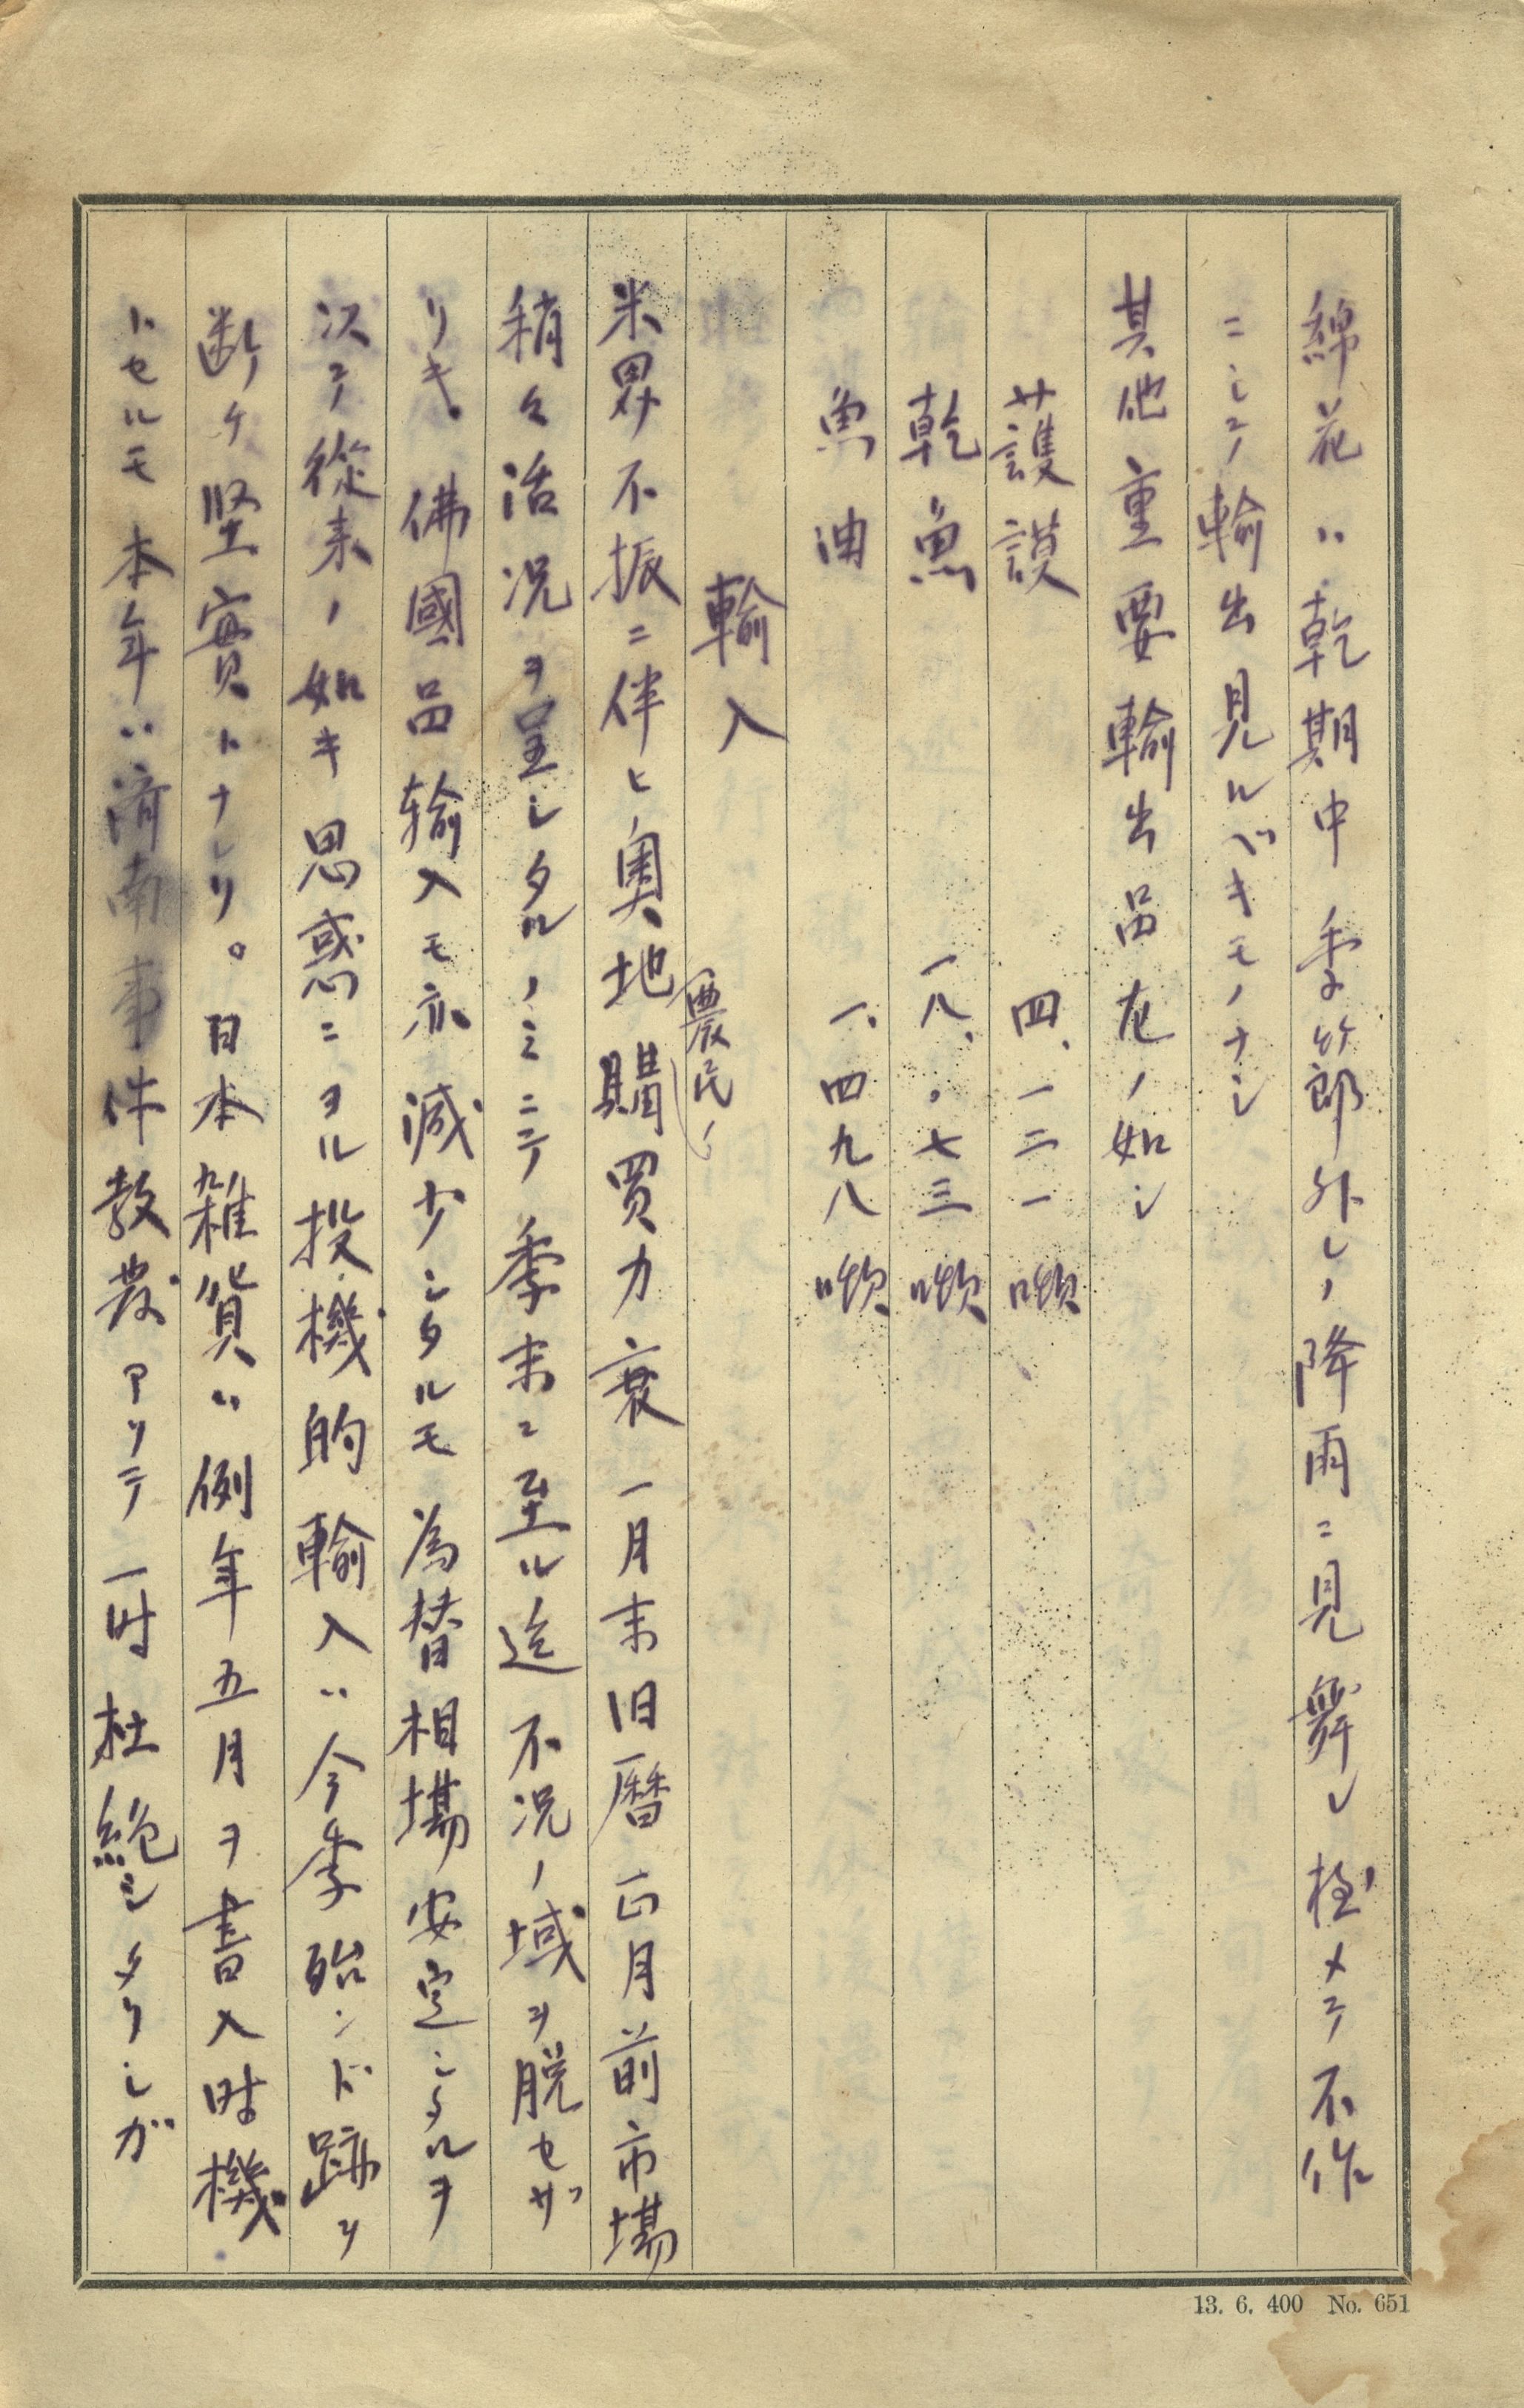 綿花ハ乾期中季節外レノ降雨ニ見舞レ極メテ不作
ニシテ輸出見ルベキモノナシ
其他重要輸出品左ノ如シ
護謨 四、一二一 噸
乾魚 一八、〇七三 噸
魚油 一、四九八 噸
輸入
米界不振ニ伴ヒ、奥地農民ノ購買力衰ヘ一月末旧暦正月前市場
稍々活况ヲ呈シタルノミニテ季末ニ至ル迄不況ノ域ヲ脱セザ
リキ。佛國品输入モ亦減少シタルモ為替相場安定シタルヲ
以テ從来ノ如キ思惑ニヨル投機的輸入ハ今季殆ンド跡ヲ
断チ堅實トナレリ。日本雑貨ハ例年五月ヲ書入時機
トセルモ本年ハ濟南事件 發アリテ一时杜絶シタリシガ
13. 6. 400 No. 651